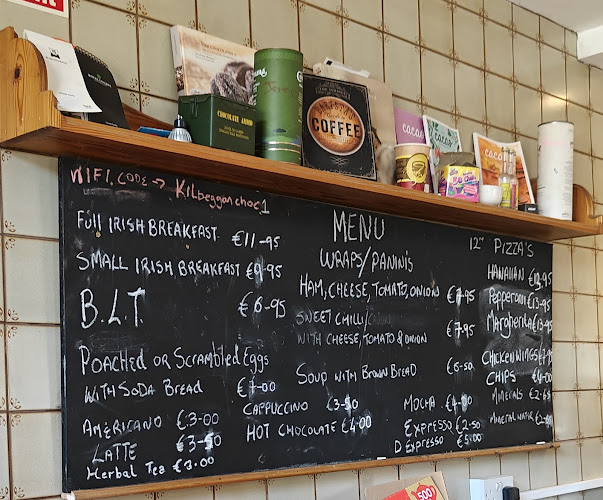 WIFI CODE → Kilbeggan choc 1
MENU
FULL IRISH BREAKFAST €11-95
SMALL IRISH BREAKFAST €9-95
B.L.T. €6-95
POACHED OR SCRAMBLED EGGS
WITH SODA BREAD €7-00
AMERICANO €3-00
LATTE €3-50
Herbal Tea €3.00
WRAPS/PANINIS
HAM, CHEESE, TOMATO, ONION €7-95
SWEET CHILLI/
WITH CHEESE, TOMATO & ONION €7-95
SOUP WITH BROWN BREAD €6-50
CAPPUCCINO €3-50
HOT CHOCOLATE €4-00
MOCHA €4-00
EXPRESSO €2-50
D EXPRESSO €5.00
12" PIZZA'S
HAWAIIAN
Pepperoni €13-95
Margherita €13-95
CHICKEN WINGS €7-95
CHIPS €4-00
MINERALS
MINERAL WATER
COFFEE
CHOCOLATE AMMO
cacao
cacao
cacao
500